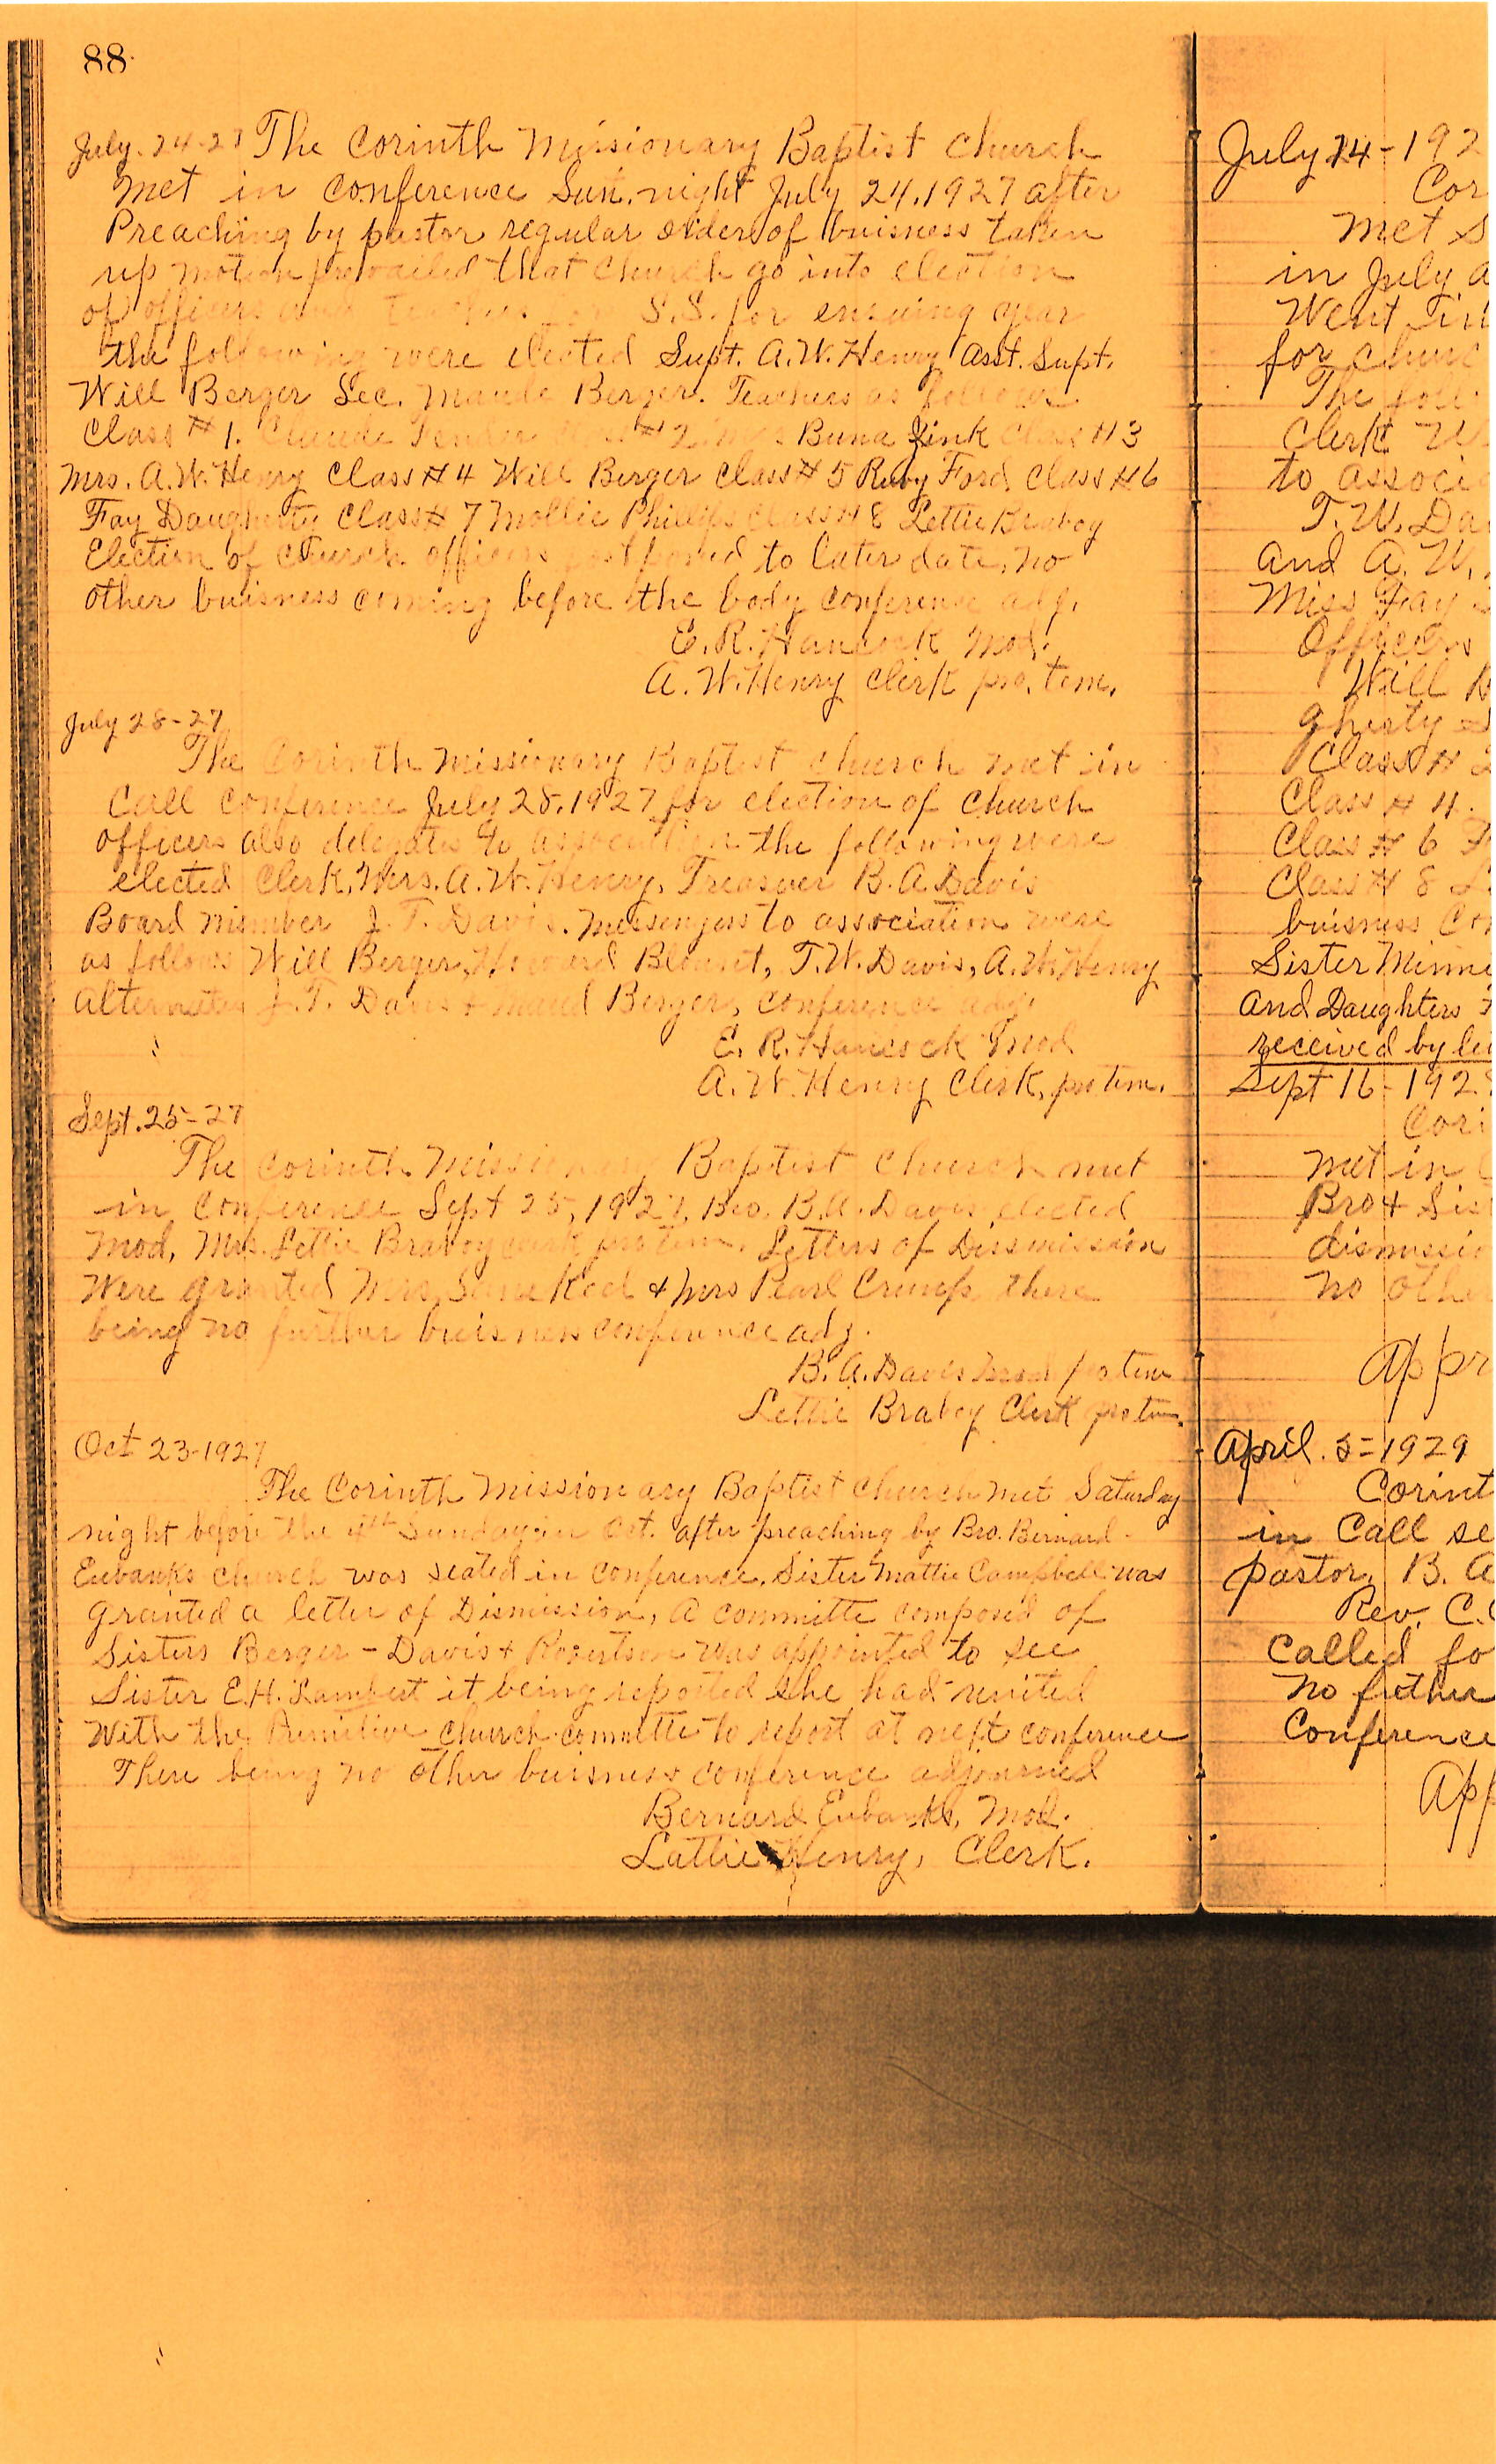 88
July. 24-27 The Corinth Missionary Baptist Church
met in conference Sun. night July 24, 1927 after
Preaching by pastor regular order of buisness taken
up motion prevailed that church go into election
of officers and S.S. for ensuing year
the following were elected Supt. A.W. Henry Asst. Supt.
Will Berger Sec. Maude Berger. Teachers as follows
Class #1. Claude #2 Mrs Buna Zink Class #3
Mrs. A.W. Henry Class #4 Will Berger Class #5 Ruby Ford Class #6
Fay Daugherty Class #7 Mollie Phillips Class #8 Lettie Braboy
Election of church officers postponed to later date, no
other buisness coming before the body conference adj.
E. R. Hancock Mod.
A. W. Henry Clerk pro. tem.
July 28-27
The Corinth Missionary Baptist church met in
Call conference July 28, 1927 for election of church
officers also delegates to association the following were
elected Clerk, Mrs. A. W. Henry, Treasuer B. A. Davis
Board member J. T. Davis. Messengers to association were
as follows Will Berger, Howard Blount, T.W. Davis, A.W. Henry
Alternates J. T. Davis + Maud Berger, conference adj.
E. R. Hancock Mod
A. W. Henry Clerk, pro tem.
Sept. 25-27
The Corinth Missionary Baptist Church met
in Conference Sept 25, 1927, Bro. B.A. Davis elected
Mod, Mrs. Lettie Braboy clerk pro tem. Letters of Dissmission
were granted Mrs. & Mrs Pearl Crump there
being no further buisness conference adj.
B. A. Davis Mod pro tem
Lettie Braboy Clerk pro tem.
Oct 23-1927
The Corinth Missionary Baptist Church met Saturday
night before the 4th Sunday in Oct. after preaching by Bro. Bernard
Eubanks church was seated in conference. Sister Mattie Campbell was
granted a letter of Dismission, A committe composed of
Sisters Berger - Davis & Robertson was appointed to see
Sister E.H. Lambert it being reported she had united
With the Primitive church committe to report at next conference
There being no other buisness conference adjourned
Bernard Eubanks, Mod.
Lattie Henry, Clerk.
July 24-192
Cor
met S
in July a
Went in
for churc
The foll
Clerk W
to associ
T. W. Da
and A. W.
Miss Fay
Officers
Will B
gherty
Class #
Class # 4.
Class # 6 F
Class # 8 L
buisness Co
Sister Minni
and Daughters
received by le
Sept 16-192
Cori
met in
Bro & Sis
dismissio
no othe
Appr
April. 5=1929
Corint
in Call se
pastor, B. A
Rev. C.
Called fo
no futher
Conference
App